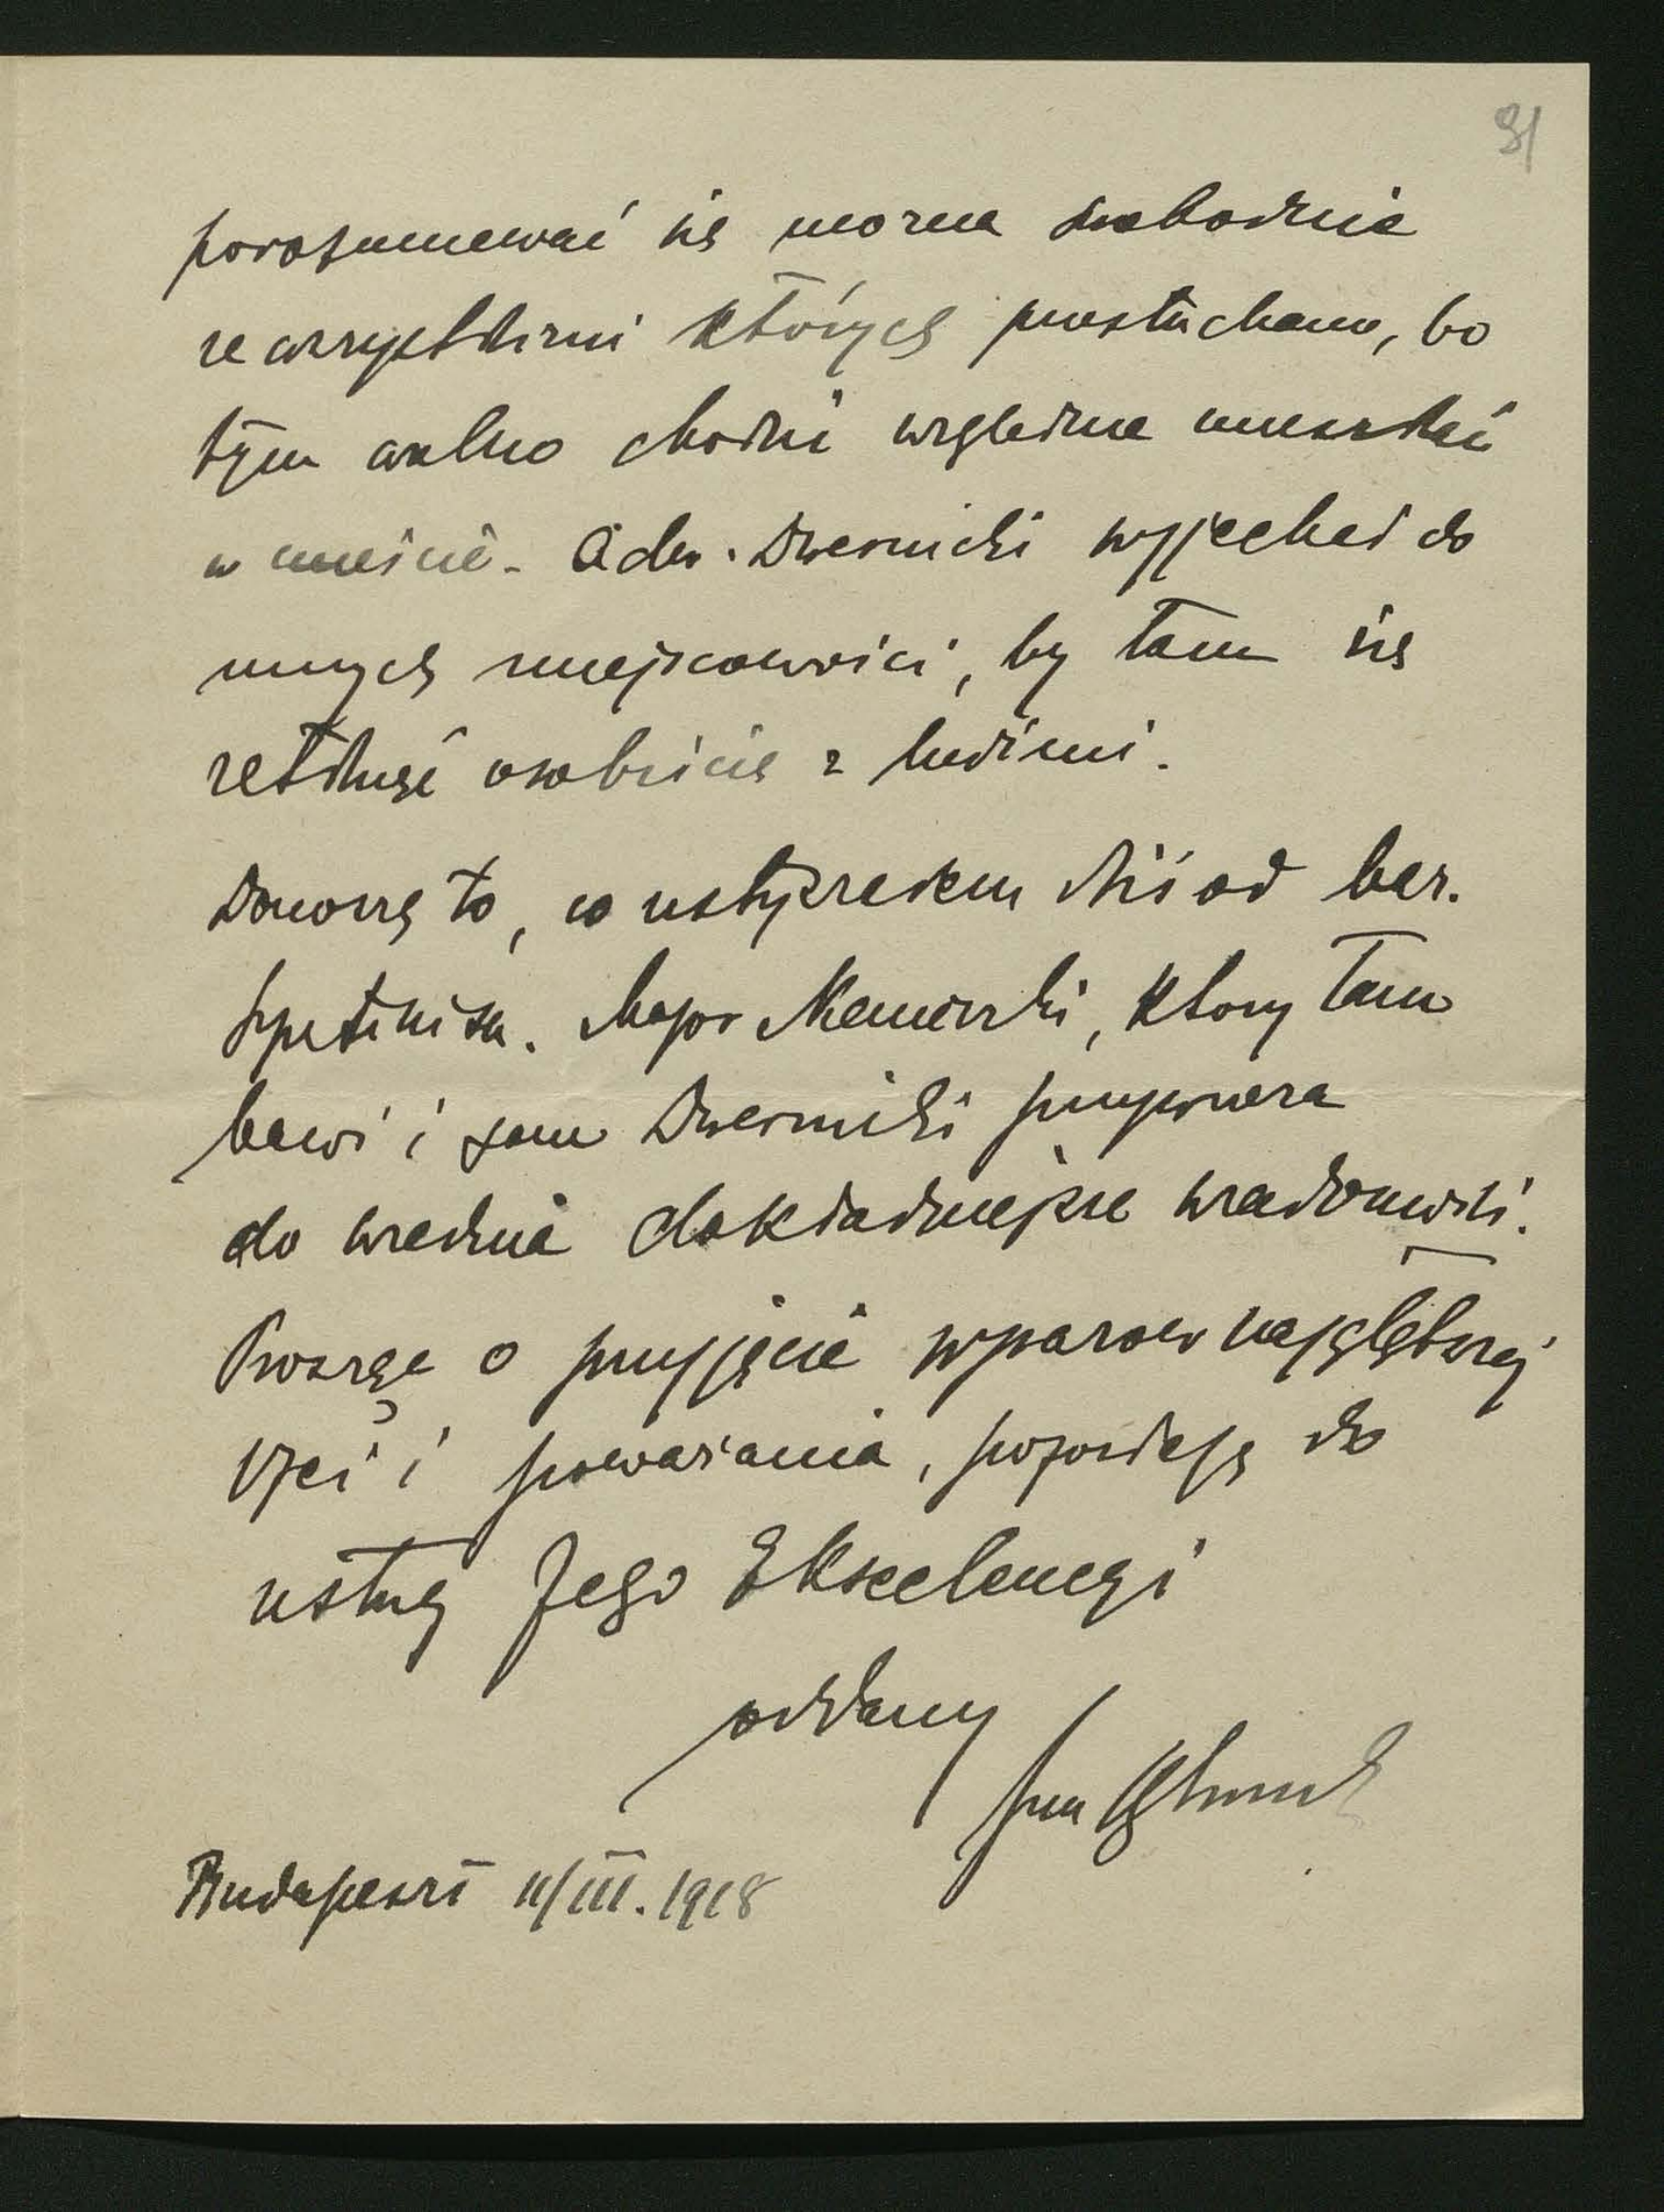 31
porozumiewać się można swobodnie
ze wszystkimi których przesłuchano, bo
tym wolno chodzić względnie mieszkać
w mieście. Adw. Dwernicki wyjechał do
innych miejscowości, by tam się
zetknąć osobiście z ludźmi.
Donoszę to, co usłyszałem dziś od bar.
Major który tam
bawi i sam Dwernicki przywiezą
do Wiednia dokładniejsze wiadomości.
Proszę o przyjęcie wyrazów najgłębszej
czci i poważania, pozostaję do
usług Jego Ekscelencyi
oddany
Jan
Budapeszt 11/III. 1918